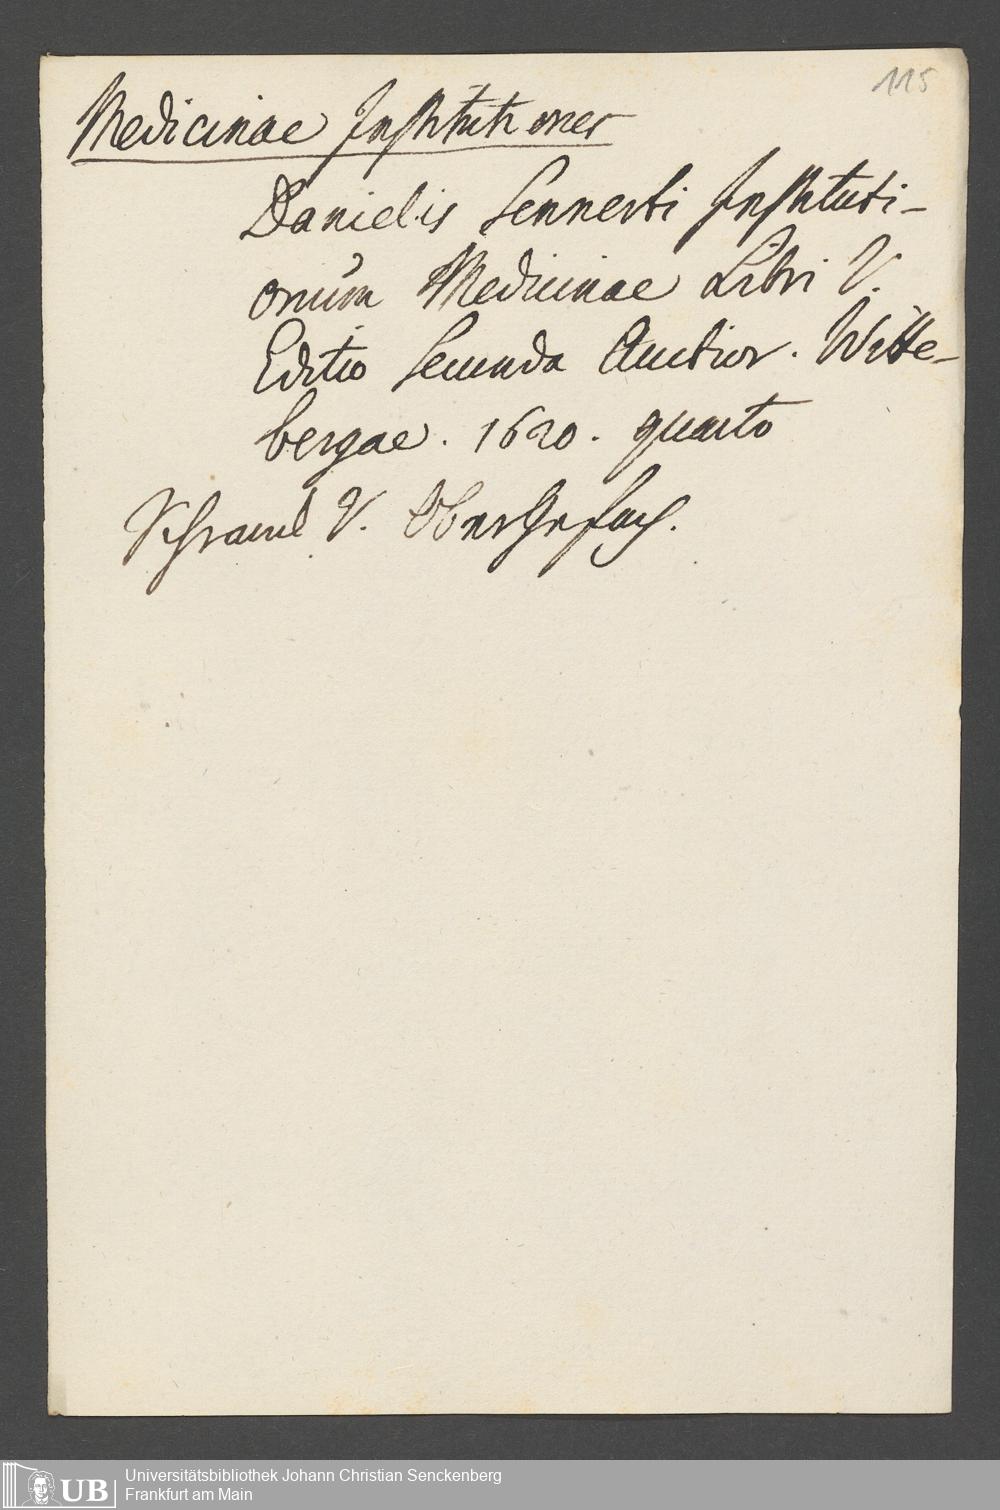 115
Medicinae Institutiones
Danielis Sennerti Instituti-
onum Medicinae Libri V.
Editio Secunda Auctior. Witte-
bergae. 1620. quarto
V.
UB
Universitätsbibliothek Johann Christian Senckenberg
Frankfurt am Main